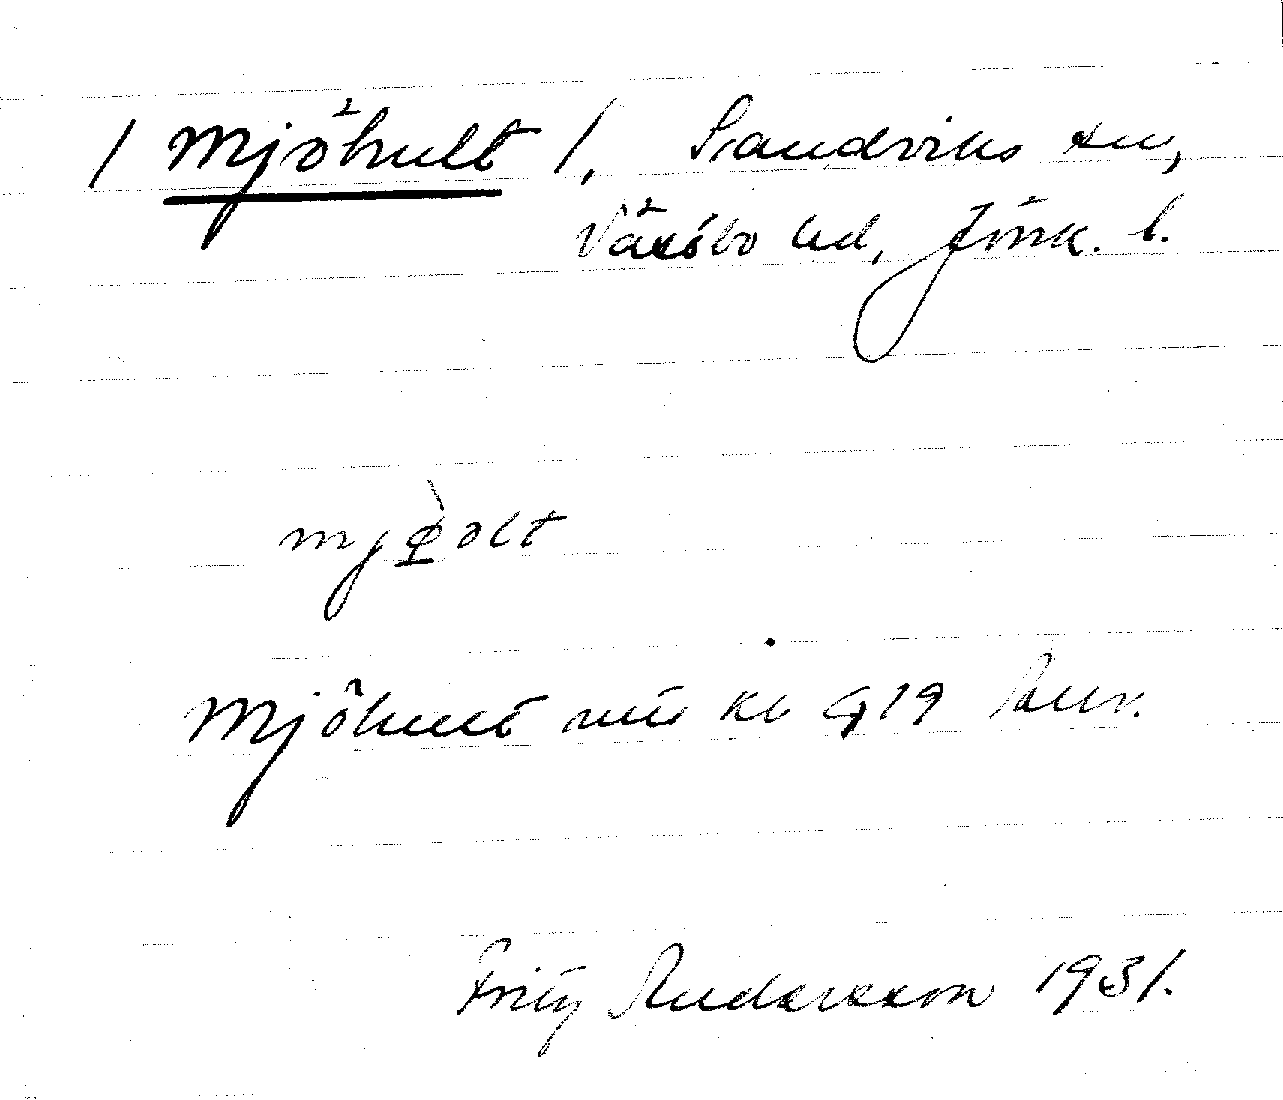 / Mjöhult /, Sandviks sn,
Västbo hd, Jönk. l.
mjø̀olt
Mjöhult mtl kb G 19 Surv.
Fritz Andersson 1931.